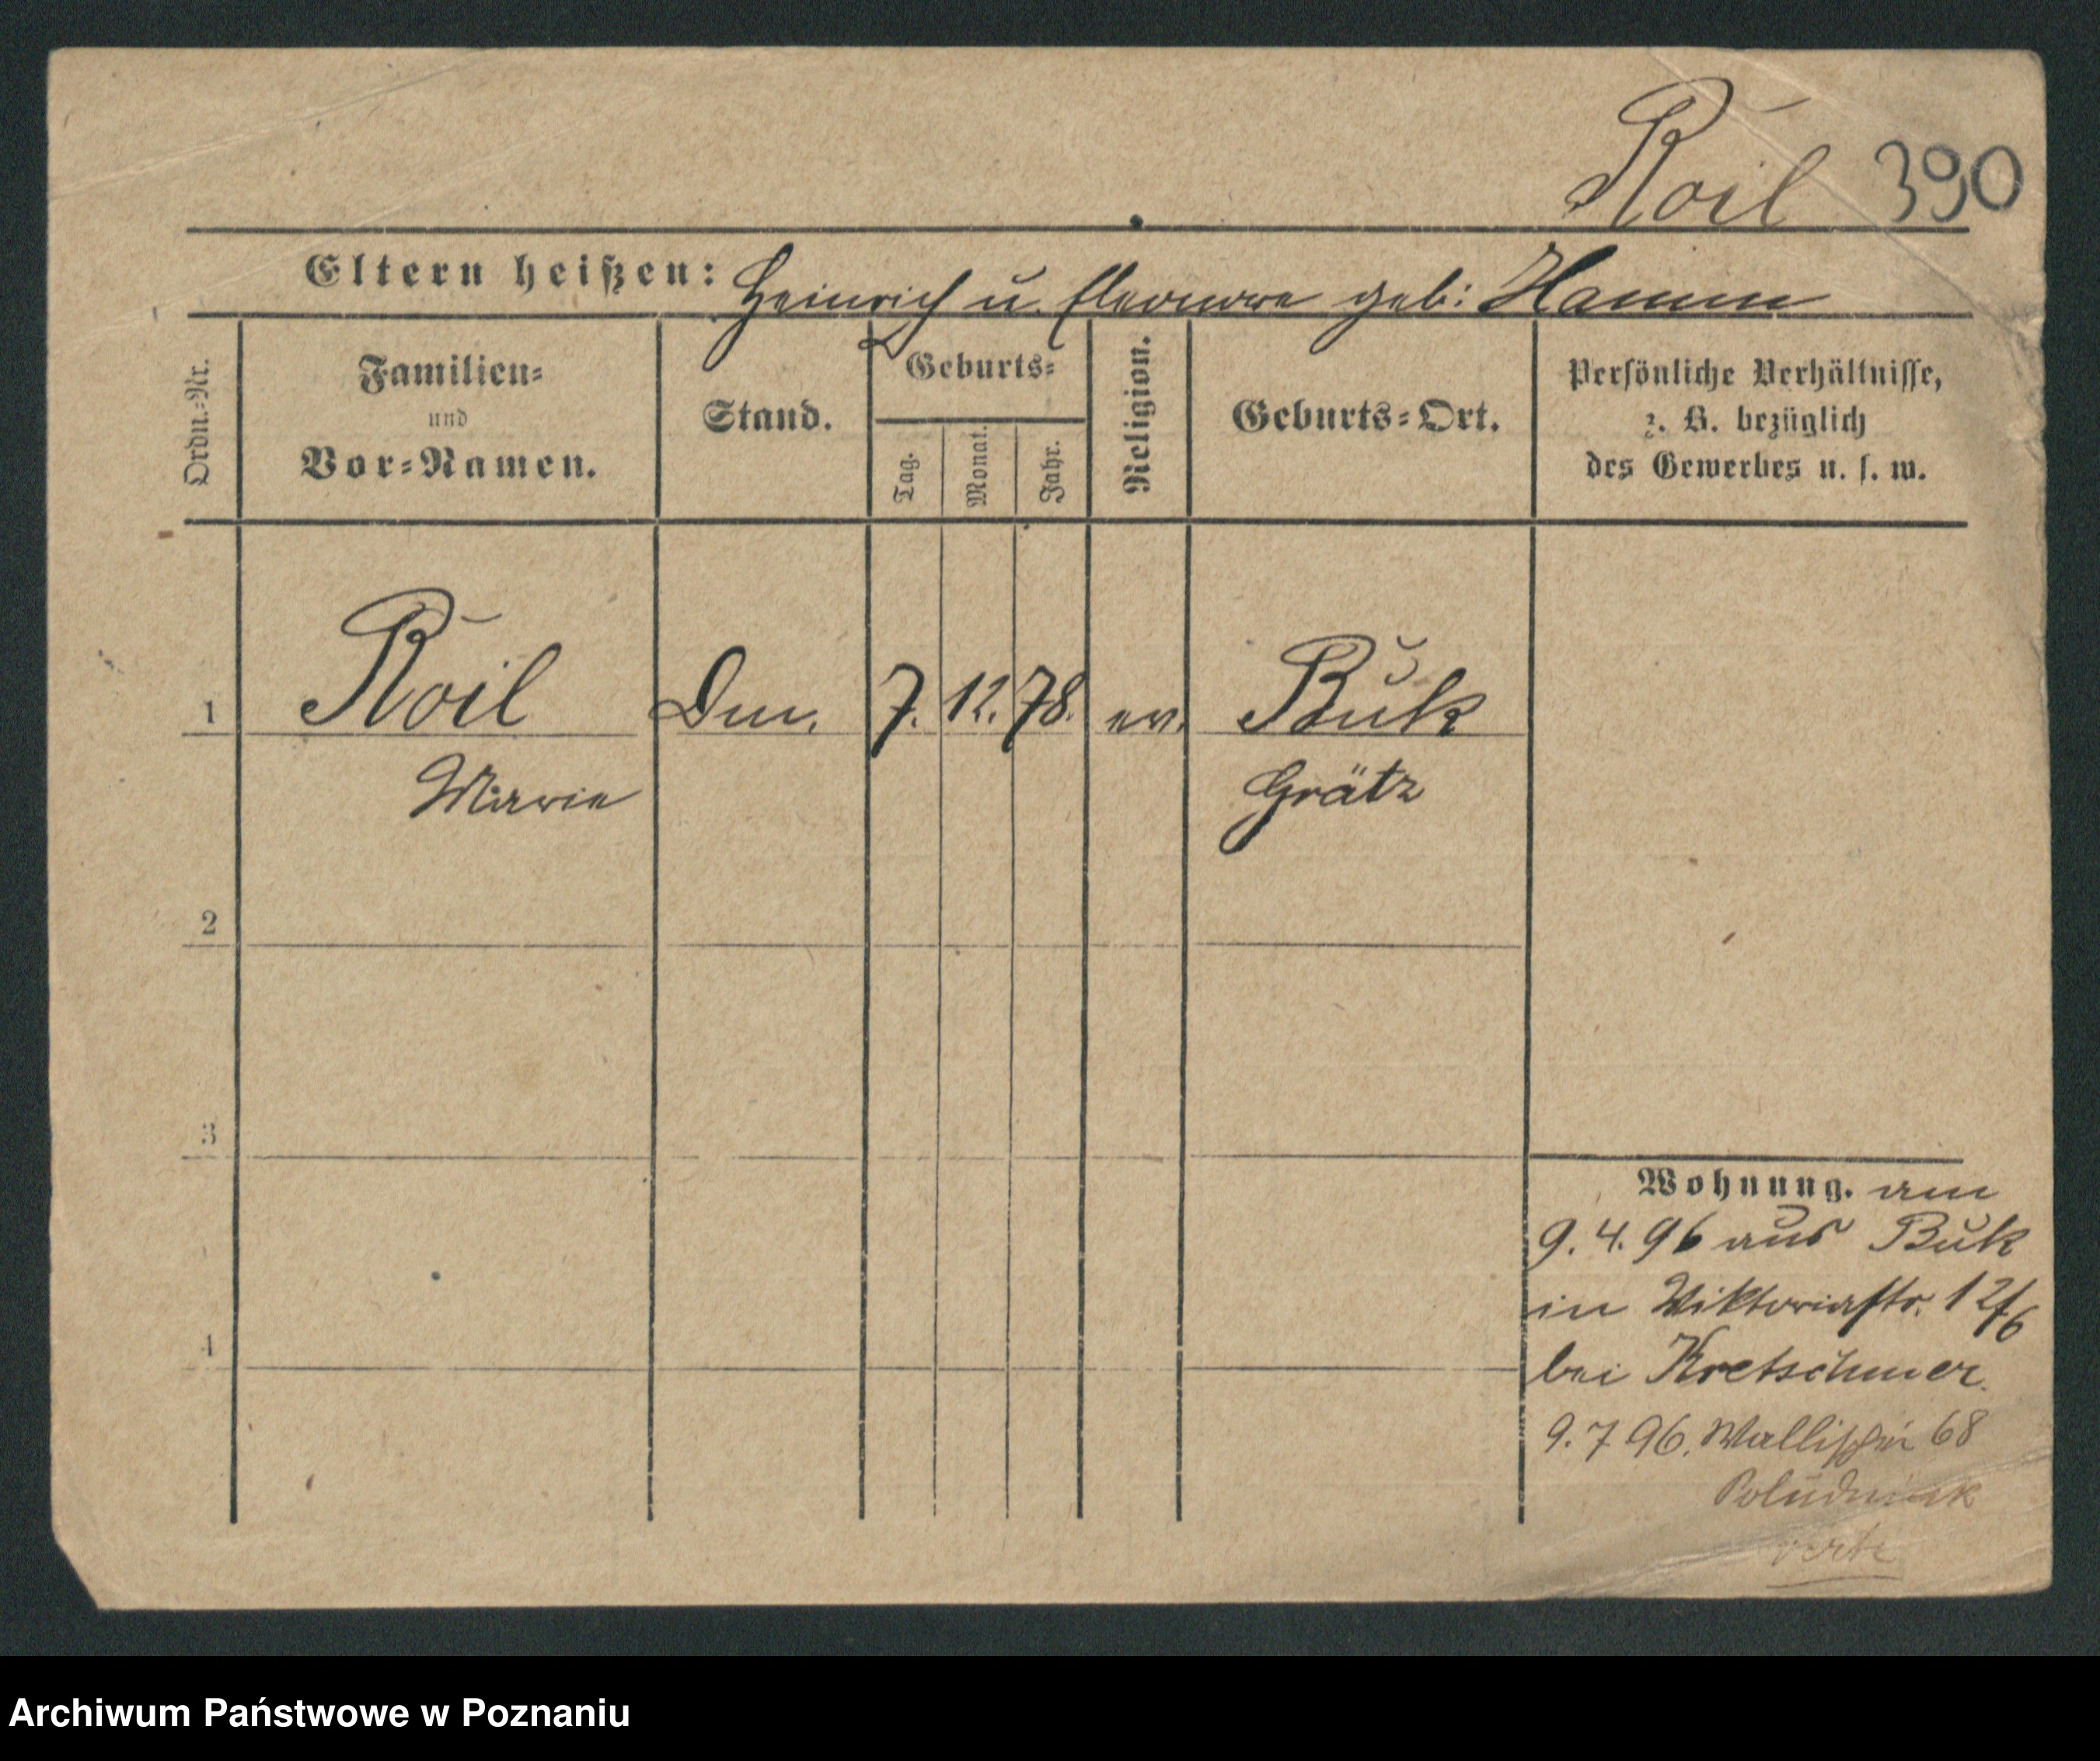 Roil 390
Eltern heißen: Heinrich u. Eleonore geb: Hamm
Ordn.-Nr.
Familien-
und
Vor-Namen.
Stand.
Geburts-
Tag.
Monat.
Jahr.
Religion.
Geburts-Ort.
Persönliche Verhältnisse,
z. B. bezüglich
des Gewerbes u. s. w.
1 Roil Dm. 7. 12. 78. ev. Buk
Marie Grätz
2
3
4
Wohnung. am
9. 4. 96 aus Buk
in Viktoriastr. 12/6
bei Kretschmer.
9. 7 96. Wallischei 68
verte
Archiwum Państwowe w Poznaniu